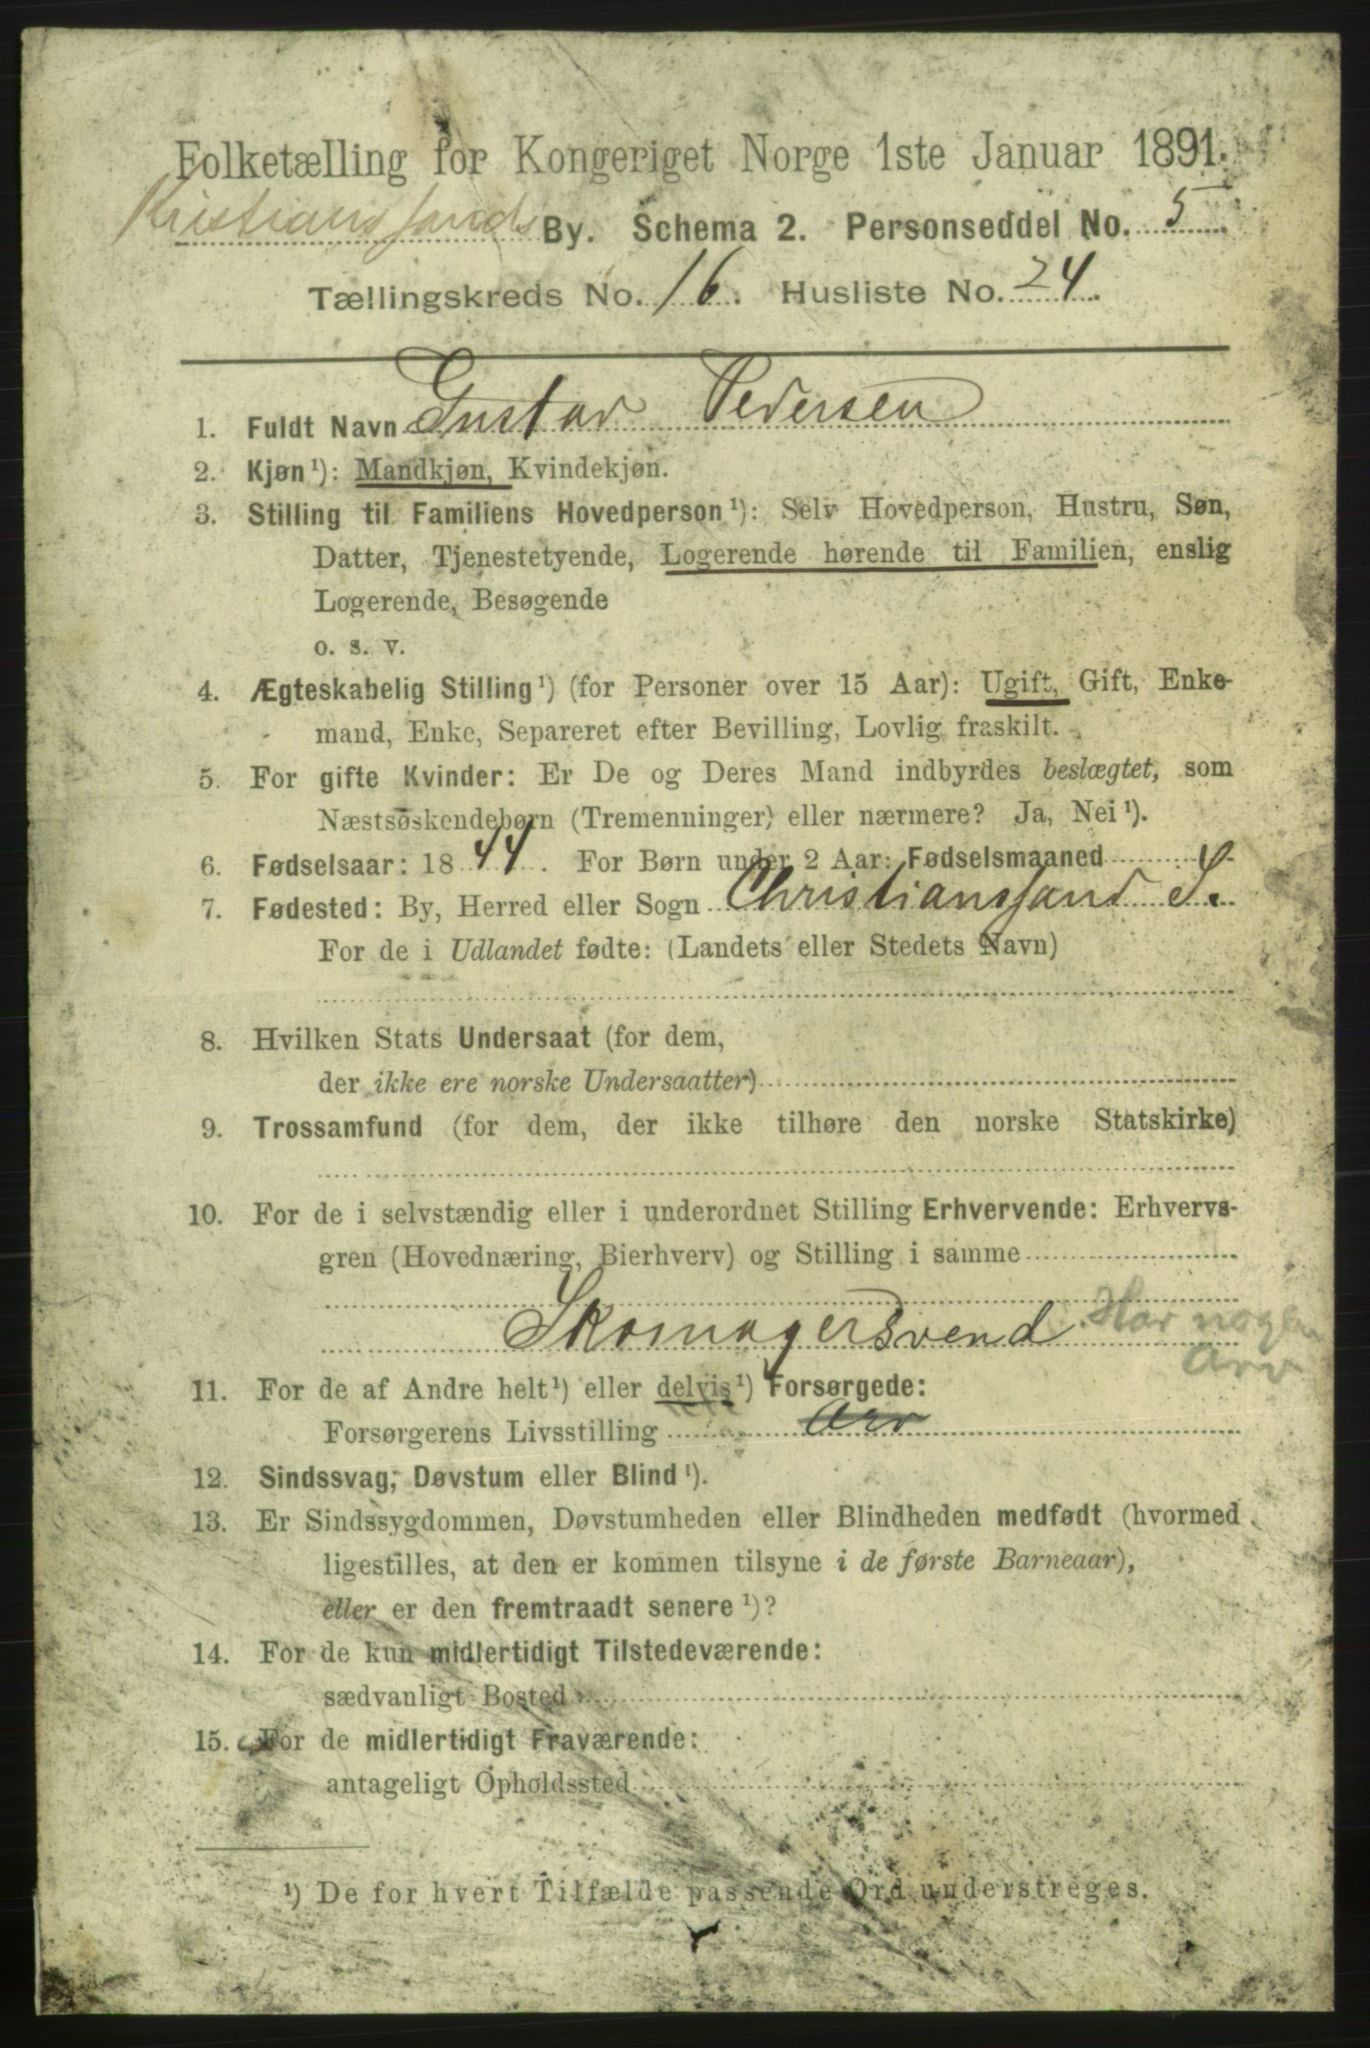 Folketælling for Kongeriget Norge 1ste Januar 1891.
Kristianssands By. Schema 2. Personseddel No. 5
Tællingskreds No. 16. Husliste No. 24.
1. Fuldt Navn Gustav Pedersen
2. Kjøn¹): Mandkjøn, Kvindekjøn.
3. Stilling til Familiens Hovedperson¹): Selv Hovedperson, Hustru, Søn,
Datter, Tjenestetyende, Logerende hørende til Familien, enslig
Logerende, Besøgende
o. s. v.
4. Ægteskabelig Stilling¹) (for Personer over 15 Aar): Ugift, Gift, Enke-
mand, Enke, Separeret efter Bevilling, Lovlig fraskilt.
5. For gifte Kvinder: Er De og Deres Mand indbyrdes beslægtet, som
Næstsøskendebørn (Tremenninger) eller nærmere? Ja, Nei¹).
6. Fødselsaar: 1844. For Børn under 2 Aar: Fødselsmaaned
7. Fødested: By, Herred eller Sogn Christianssand S.
For de i Udlandet fødte: (Landets eller Stedets Navn)
8. Hvilken Stats Undersaat (for dem,
der ikke ere norske Undersaatter)
9. Trossamfund (for dem, der ikke tilhøre den norske Statskirke)
10. For de i selvstændig eller i underordnet Stilling Erhvervende: Erhvervs-
gren (Hovednæring, Bierhverv) og Stilling i samme
Skomagersvend Har nogen
Arv
11. For de af Andre helt¹) eller delvis¹) Forsørgede:
Forsørgerens Livsstilling Arv
12. Sindssvag, Døvstum eller Blind¹).
13. Er Sindssygdommen, Døvstumheden eller Blindheden medfødt (hvormed
ligestilles, at den er kommen tilsyne i de første Barneaar),
eller er den fremtraadt senere¹)?
14. For de kun midlertidigt Tilstedeværende:
sædvanligt Bosted
15. For de midlertidigt Fraværende:
antageligt Opholdssted
¹) De for hvert Tilfælde passende Ord understreges.